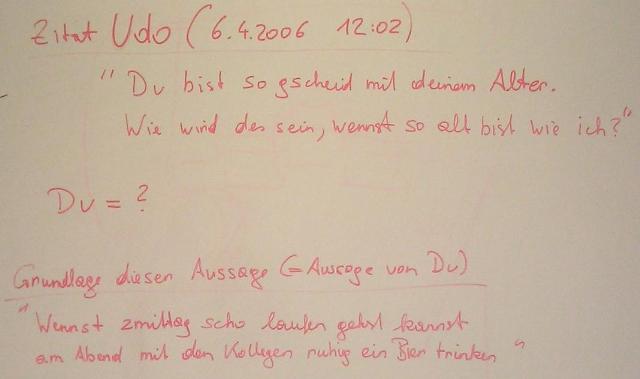 Zitat Udo (6.4.2006 12:02)
"Du bist so gscheid mit deinem Alter.
Wie wird des sein, wennst so alt bist wie ich?"
Du = ?
Grundlage diesen Aussage (= Aussage von Du)
"Wennst zmittag scho laufen gehst kannst
am Abend mit den Kollegen ruhig ein Bier trinken"